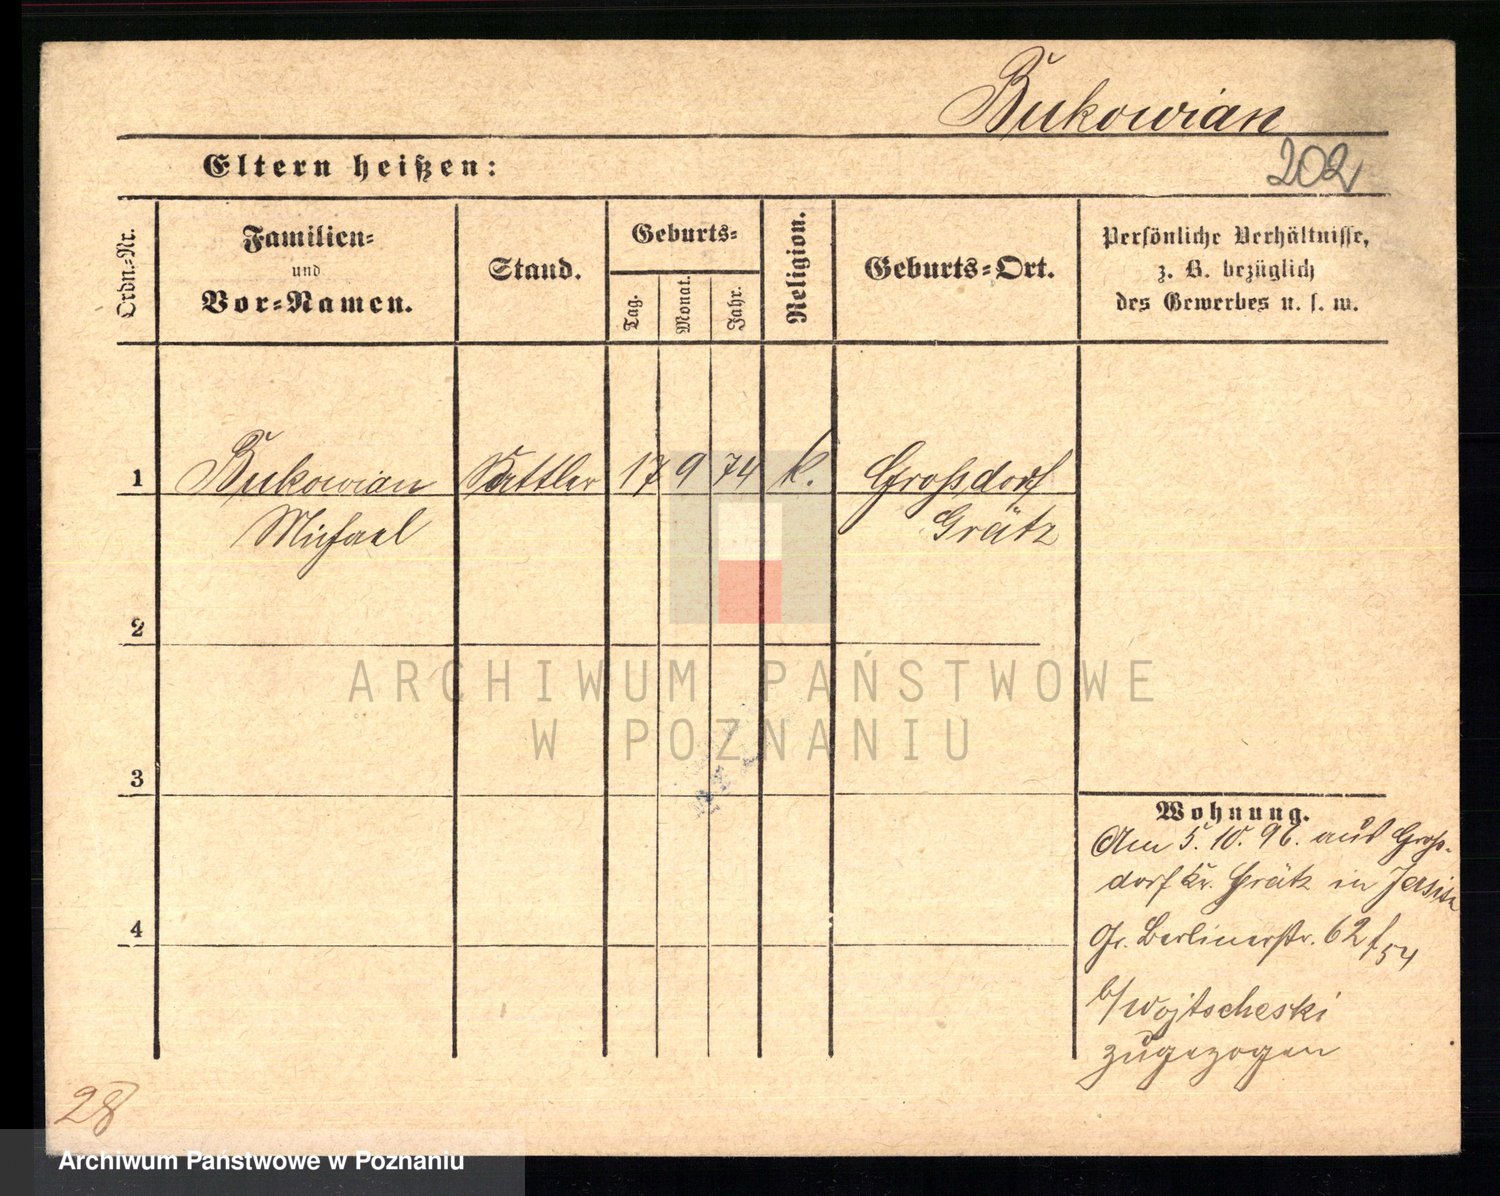 Bukowian
202
Eltern heißen:
Ordn.-Nr.
Familien-
und
Vor-Namen.
Stand.
Geburts-
Tag.
Monat.
Jahr.
Religion.
Geburts-Ort.
Persönliche Verhältnisse,
z. B. bezüglich
des Gewerbes u. s. w.
1 Bukowian Sattler 17 9 74 k. Großdorf
Michael Grätz
2
ARCHIWUM PAŃSTWOWE
W POZNANIU
3
Wohnung.
Am 5. 10. 96. aus Groß-
dorf Kr. Grätz in Jersitz
4
Gr. Berlinerstr. 62/54
b/Wojtscheski
zugezogen
28
Archiwum Państwowe w Poznaniu